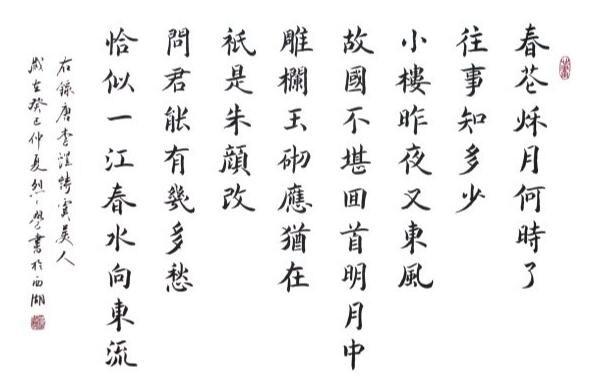 春花秋月何時了
往事知多少
小樓昨夜又東風
故國不堪回首明月中
雕欄玉砌應猶在
衹是朱顔改
問君能有幾多愁
恰似一江春水向東流
右録唐李煜詩虞美人
歲在癸巳仲夏書於西湖